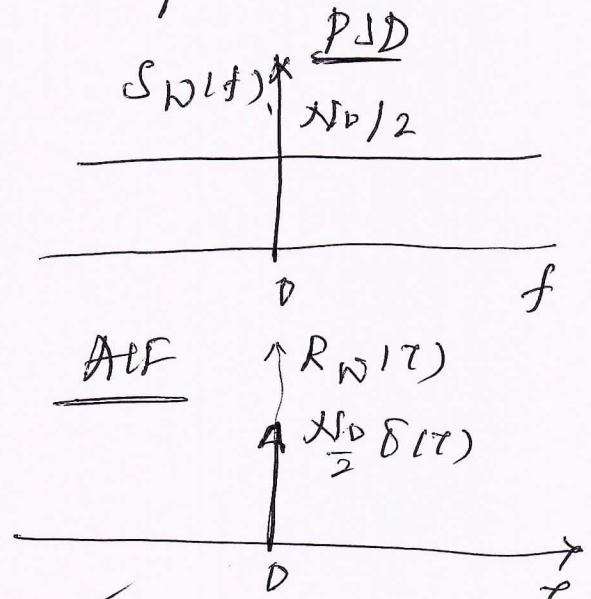 PSD
S_W(f)
N_0/2
0
f
ACF
R_W(τ)
N_0/2 δ(τ)
0
τ